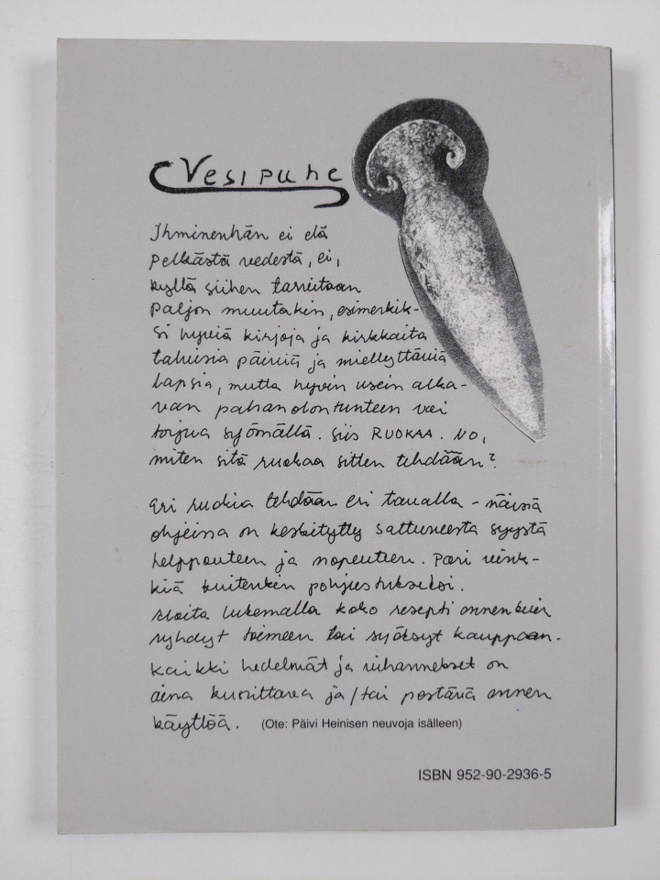 Vesipuhe
Ihminenhän ei elä
pelkästä vedestä, ei,
kyllä siihen tarvitaan
paljon muutakin, esimerkik-
si hyviä kirjoja ja kirkkaita
talvisia päiviä ja miellyttäviä
lapsia, mutta hyvin usein alka-
van pahanolontunteen voi
torjua syömällä. Siis RUOKAA. NO,
miten sitä ruokaa sitten tehdään?
Eri ruokia tehdään eri tavalla - näissä
ohjeissa on keskitytty sattuneesta syystä
helppouteen ja nopeuteen. Pari vink-
kiä kuitenkin pohjustukseksi.
Aloita lukemalla koko resepti ennenkuin
ryhdyt toimeen tai syöksyt kauppaan.
Kaikki hedelmät ja vihannekset on
aina kuorittava ja/tai pestävä ennen
käyttöä. (Ote: Päivi Heinisen neuvoja isälleen)
ISBN 952-90-2936-5